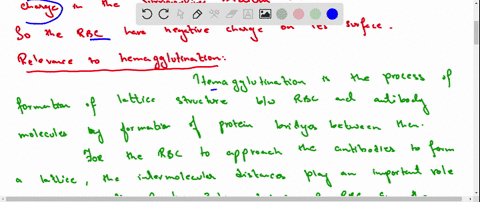 charge in the
So the RBC have negative charge on its surface.
Relevance to hemagglutination:
Hemagglutination is the process of
formation of lattice structure b/w RBC and antibody
molecules by formation of protein bridges between them.
For the RBC to approach the antibodies to form
a lattice, the intermolecular distances play an important role